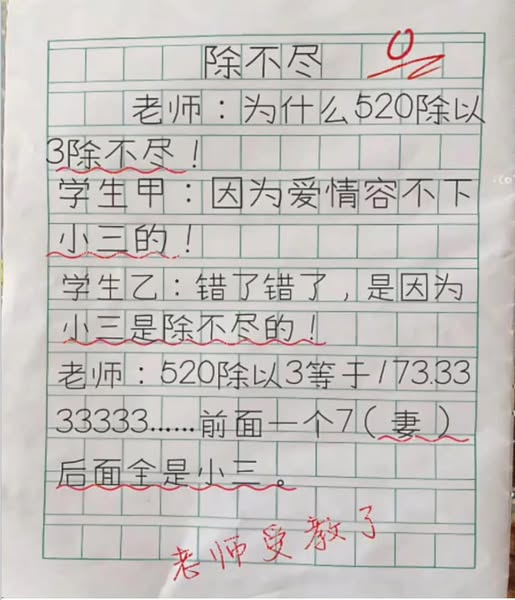 除不尽
0
老师：为什么520除以
3除不尽！
学生甲：因为爱情容不下
小三的！
学生乙：错了错了，是因为
小三是除不尽的！
老师：520除以3等于173.33
33333……前面一个7(妻)
后面全是小三。
老师受教了